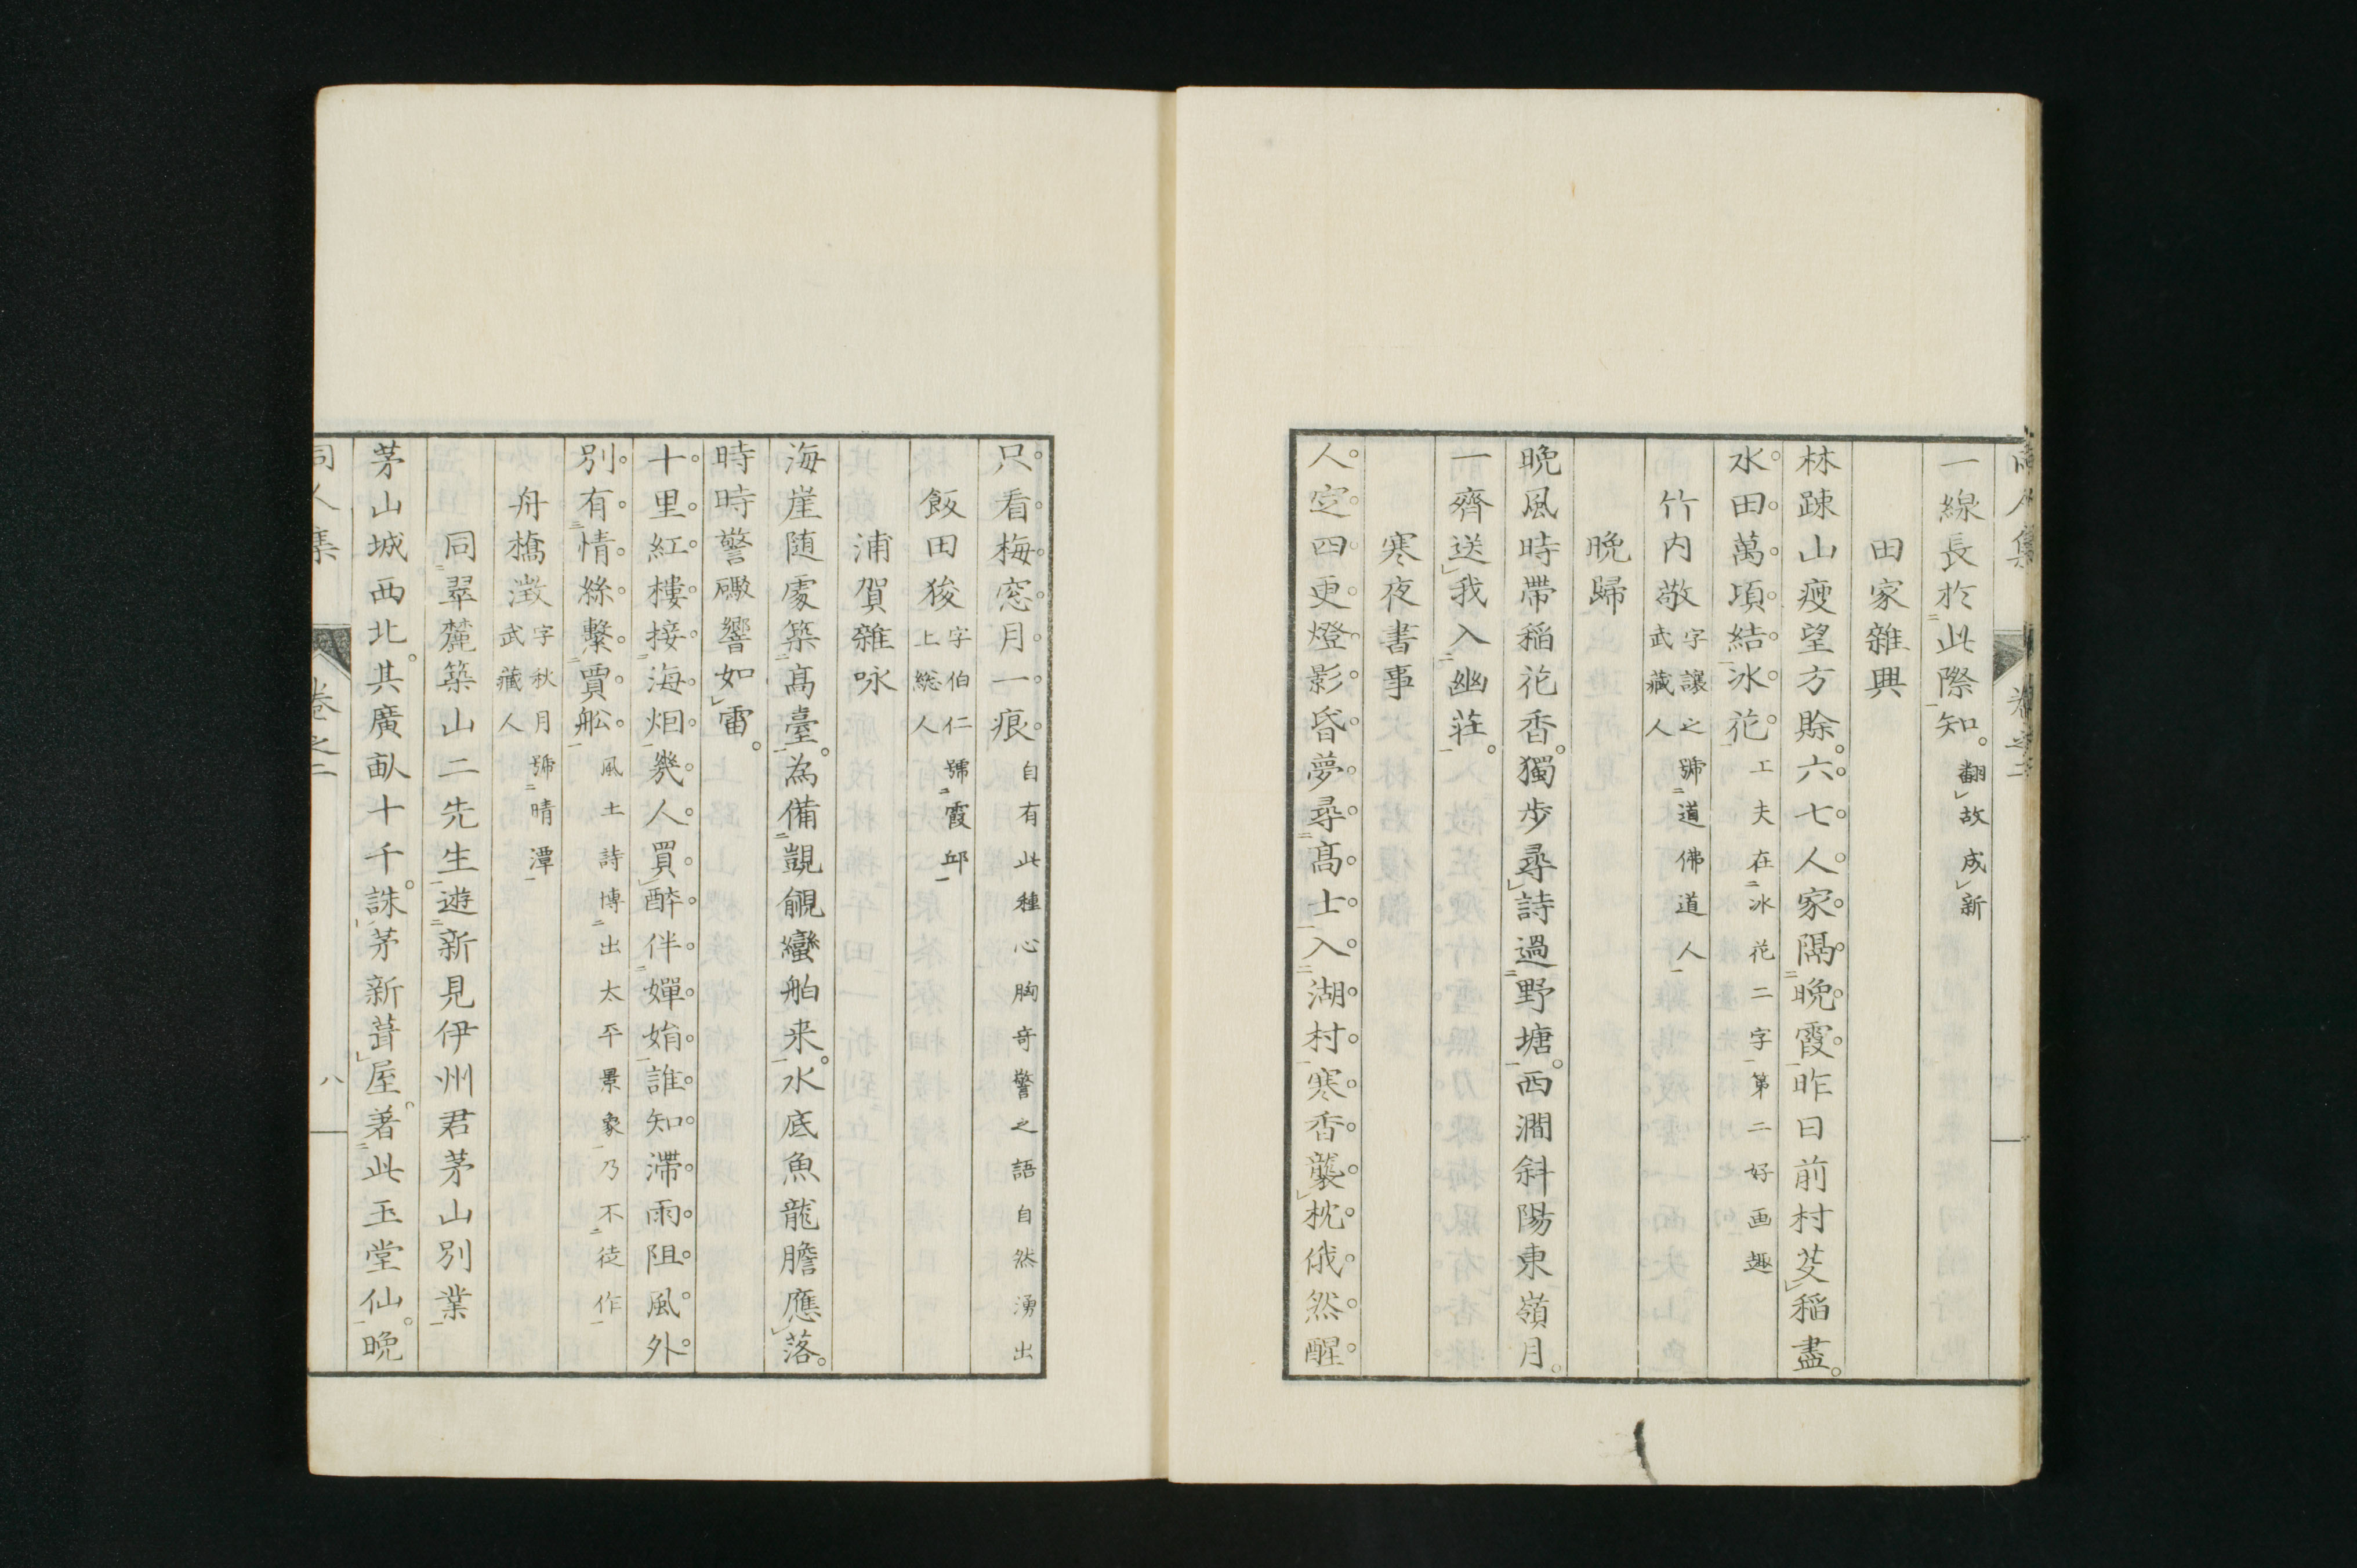 一線長於此際知。翻故成新
田家雜興
林踈山瘦望方賒。六七人家隔晩霞。昨日前村芟稻盡。
水田萬項結冰花。工夫在冰花二字第二好画趣
竹内敬 字讓之號道佛道人 武藏人
晩歸
晩風時帶稲花香。獨步尋詩過野塘。西澗斜陽東嶺月。
一齊送我入幽莊。
寒夜書事
人定四更燈影昏。夢尋高士入湖村。寒香襲枕俄然醒。
只看梅窓月一痕。自有此種心胸奇警之語自然湧出
飯田㹸 字伯仁號霞邱 上総人
浦賀雜咏
海崖随處築髙臺。為備覬覦蠻舶来。水底魚龍膽應落。
時時警礮響如雷。
十里紅樓接海烟。幾人買醉伴嬋娟。誰知滯雨阻風外。
別有情絲繫賈舩。風土詩博出太平景象乃不徒作
舟橋澂 字秋月號晴潭 武藏人
同翠麓築山二先生遊新見伊州君茅山別業
茅山城西北。其廣畝十千。誅茅新葺屋。著此玉堂仙。晩
同人集 卷之二 八